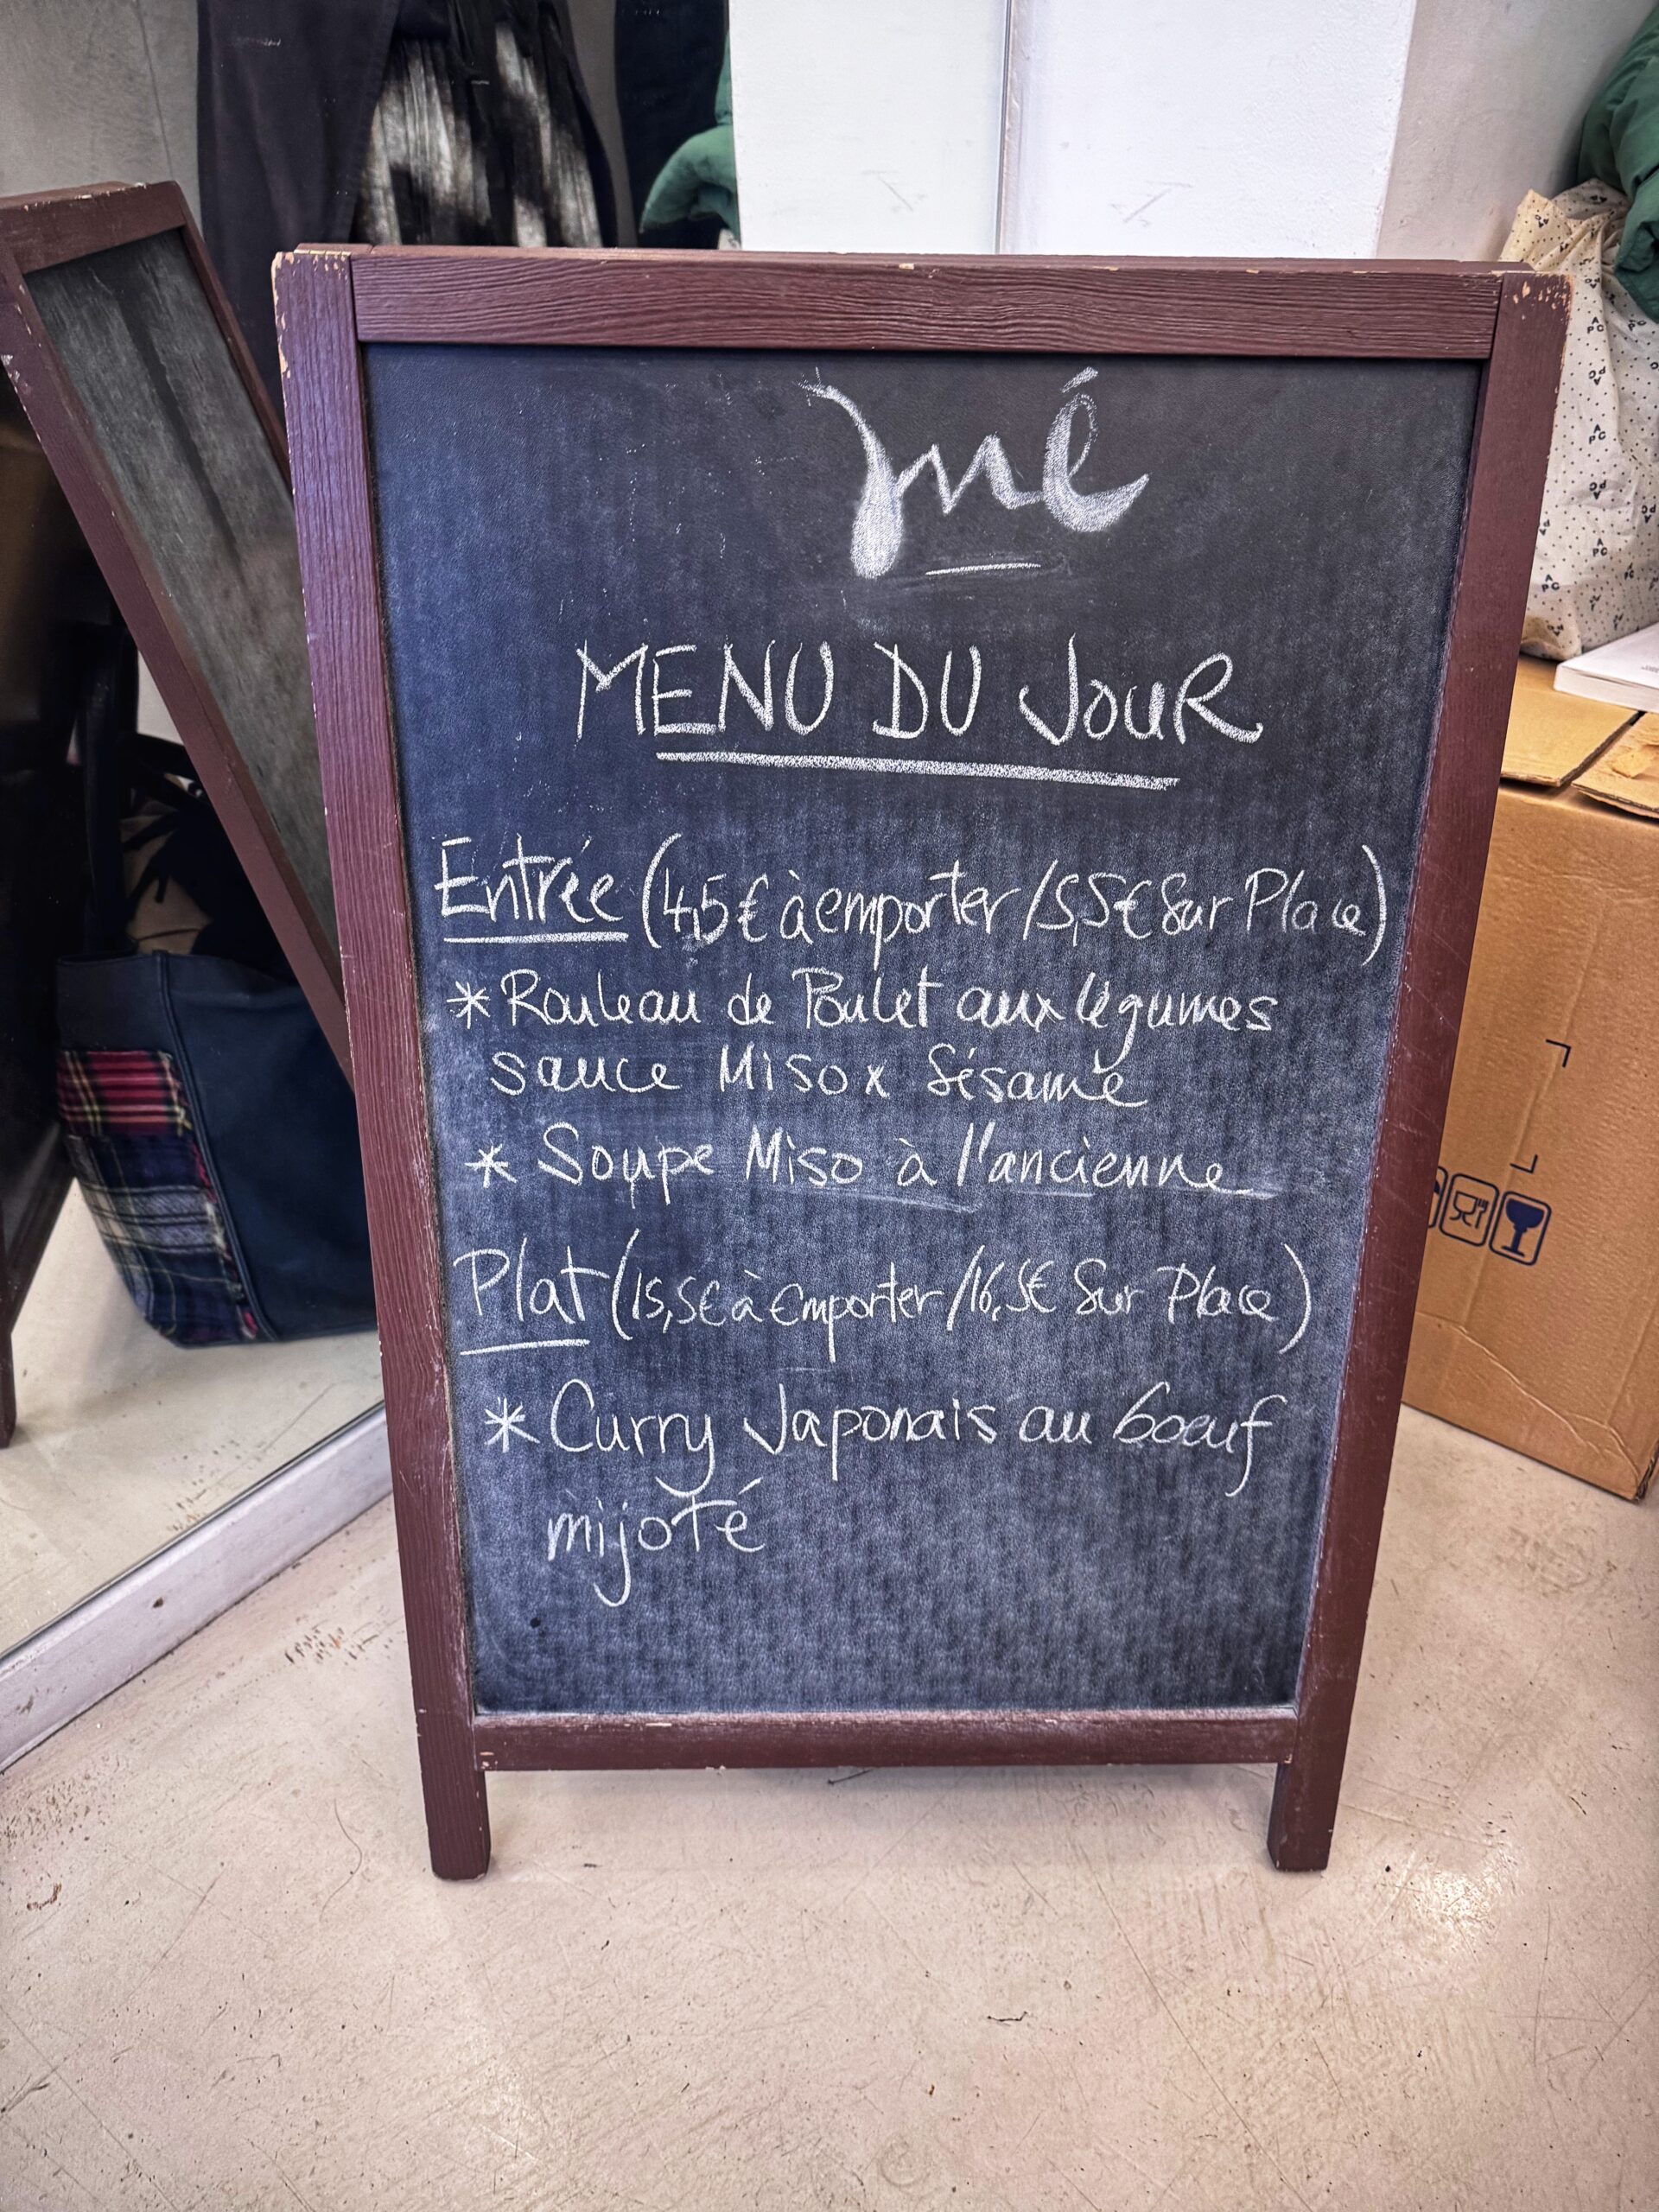 MENU DU JOUR
Entrée (4,5€ à emporter / 5,5€ Sur Place)
* Rouleau de Poulet aux légumes
sauce Miso x Sésame
* Soupe Miso à l'ancienne
Plat (15,5€ à emporter / 16,5€ Sur Place)
* Curry Japonais au boeuf
mijoté
A
PC